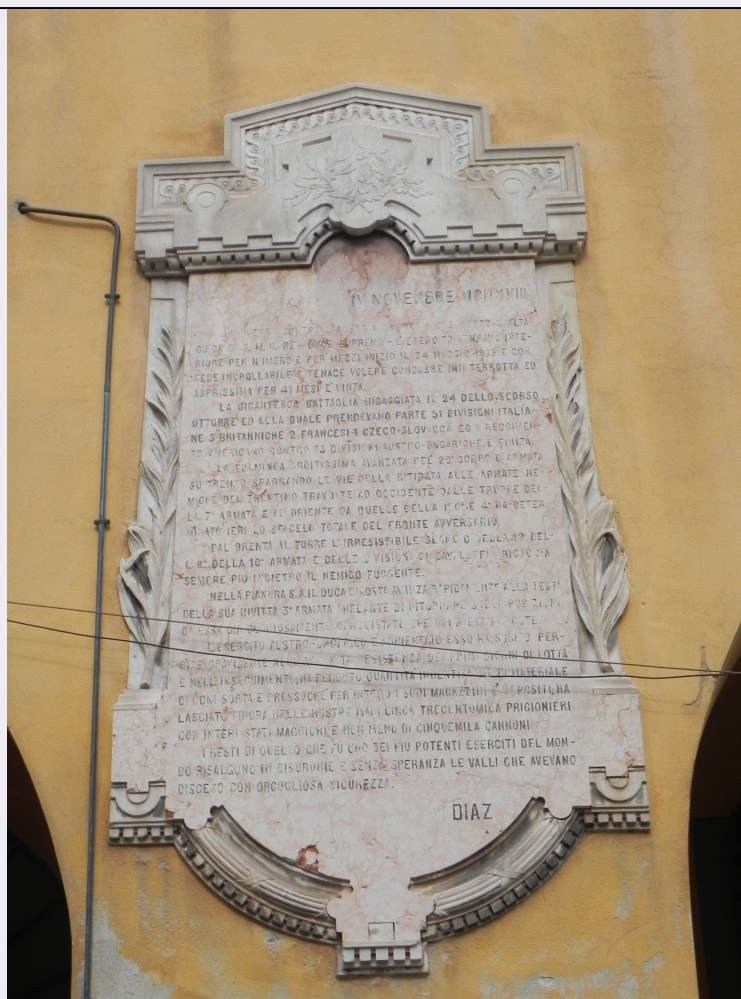 IV NOVEMBRE MCMXVIII
GUIDA DI S. M. IL RE - DUCE SUPREMO - L'ESERCITO ITALIANO INFE-
RIORE PER NUMERO E PER MEZZI INIZIÒ IL 24 MAGGIO 1915 E CON
FEDE INCROLLABILE E TENACE VOLERE CONDUSSE ININTERROTTA ED
ASPRISSIMA PER 41 MESI È VINTA.
LA GIGANTESCA BATTAGLIA INGAGGIATA IL 24 DELLO SCORSO
OTTOBRE ED ALLA QUALE PRENDEVANO PARTE 51 DIVISIONI ITALIA-
NE 3 BRITANNICHE 2 FRANCESI 1 CZECO-SLOVACCA ED 1 REGGIMEN-
TO AMERICANO CONTRO 73 DIVISIONI AUSTRO-UNGARICHE, È FINITA.
LA FULMINEA ARDITISSIMA AVANZATA DEL 29° CORPO D'ARMATA
SU TRENTO SBARRANDO LE VIE DELLA RITIRATA ALLE ARMATE NE-
MICHE DEL TRENTINO TRAVOLTE AD OCCIDENTE DALLE TRUPPE DEL-
LA 7ª ARMATA E AD ORIENTE DA QUELLE DELLA 1ª 6ª E 4ª HA DETER-
MINATO IERI LO SFACELO TOTALE DEL FRONTE AVVERSARIO.
DAL BRENTA AL TORRE L'IRRESISTIBILE SLANCIO DELLA 12ª DEL-
L'8ª DELLA 10ª ARMATA E DELLE DIVISIONI DI CAVALLERIA RICACCIA
SEMPRE PIÙ INDIETRO IL NEMICO FUGGENTE.
NELLA PIANURA S.A.R. IL DUCA D'AOSTA AVANZA RAPIDAMENTE ALLA TESTA
DELLA SUA INVITTA 3ª ARMATA ANELANTE DI RITORNARE SULLE POSIZIONI
DA ESSA GIÀ
L'ESERCITO AUSTRO-UNGARICO È ANNIENTATO ESSO HA SUBITO PER-
DITE GRAVISSIME NELL'ACCANITA RESISTENZA DEI PRIMI GIORNI DI LOTTA
E NELL'INSEGUIMENTO, HA PERDUTO QUANTITÀ INGENTISSIME DI MATERIALE
DI OGNI SORTA E PRESSOCHÈ PER INTERO I SUOI MAGAZZINI E DEPOSITI; HA
LASCIATO FINORA NELLE NOSTRE MANI CIRCA TRECENTOMILA PRIGIONIERI
CON INTERI STATI MAGGIORI E NON MENO DI CINQUEMILA CANNONI
I RESTI DI QUELLO CHE FU UNO DEI PIÙ POTENTI ESERCITI DEL MON-
DO RISALGONO IN DISORDINE E SENZA SPERANZA LE VALLI CHE AVEVANO
DISCESO CON ORGOGLIOSA SICUREZZA.
DIAZ